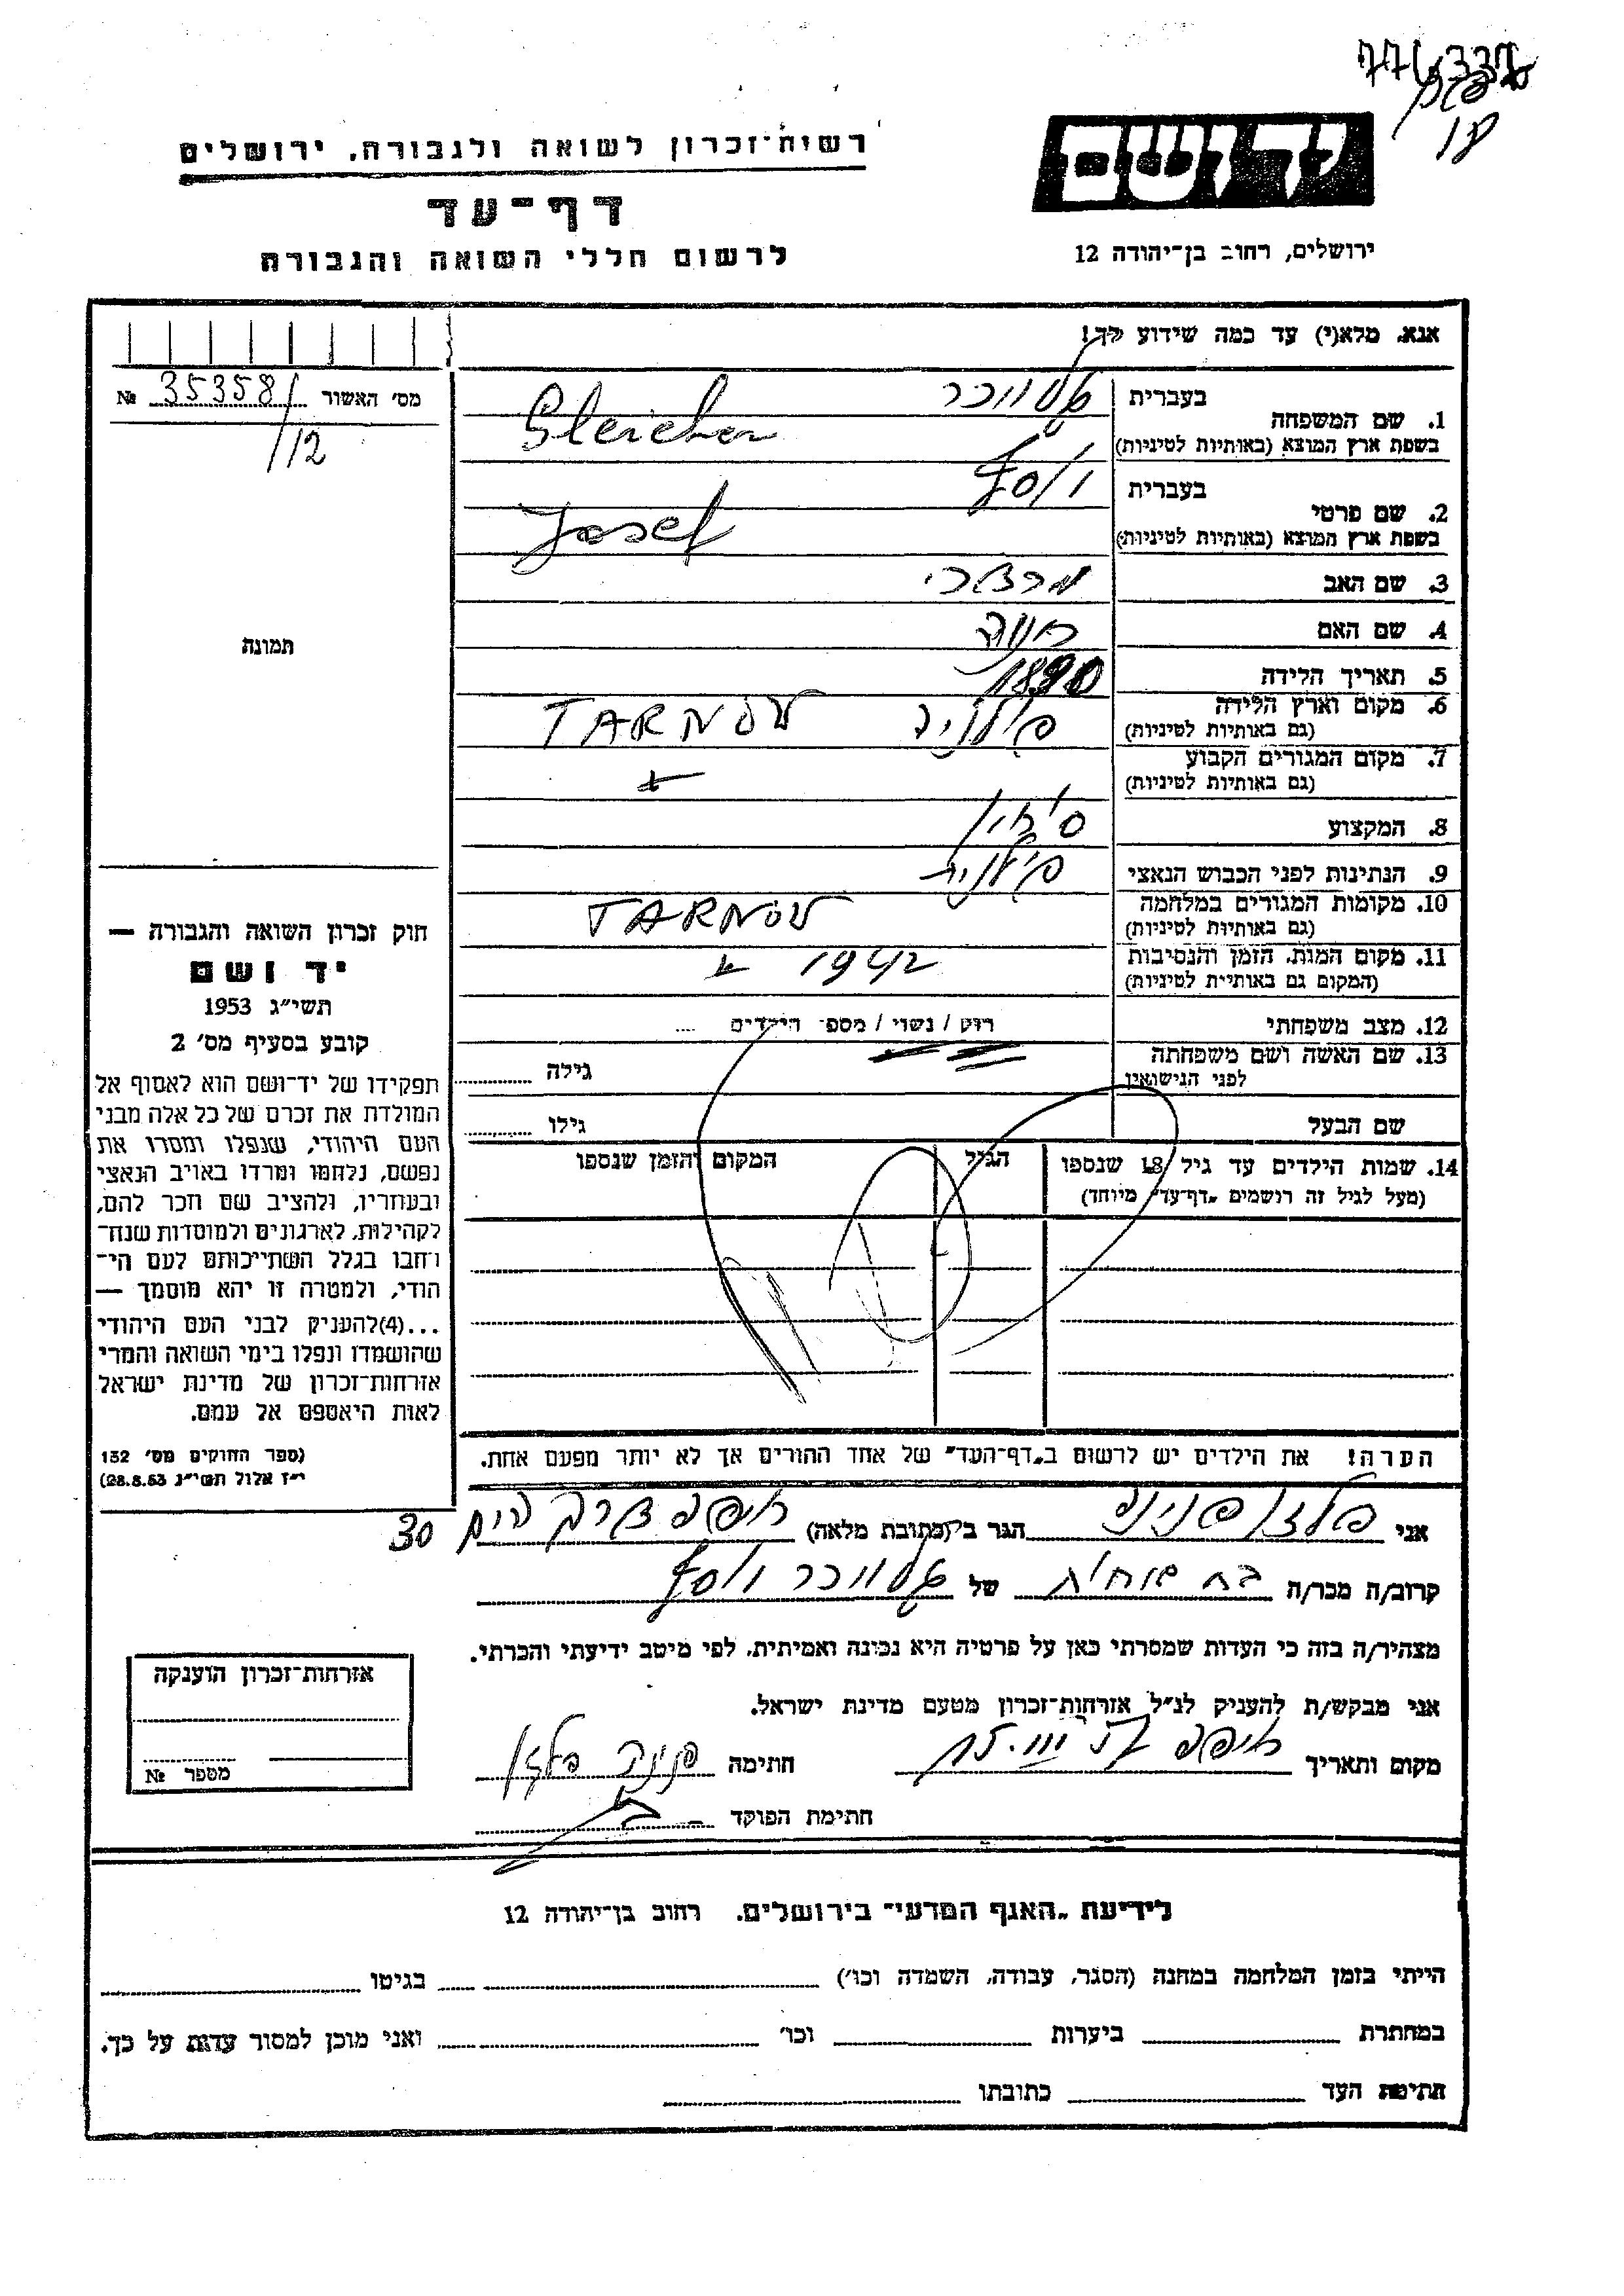 רשות־זכרון לשואה ולגבורה, ירושלים
דף־עד
לרשום חללי השואה והגבורה
יד ושם
ירושלים, רחוב בן־יהודה 12
אנא, מלא(י) עד כמה שידוע לך!
מס׳ האשור 35358/ №
/12
תמונה
1. שם המשפחה
בעברית גלייכר
בשפת ארץ המוצא (באותיות לטיניות) Gleicher
2. שם פרטי
בעברית יוסף
בשפת ארץ המוצא (באותיות לטיניות) Josef
3. שם האב מרדכי
4. שם האם
5. תאריך הלידה 1890
6. מקום וארץ הלידה פולניה TARNOV
(גם באותיות לטיניות)
7. מקום המגורים הקבוע
(גם באותיות לטיניות)
8. המקצוע
9. הנתינות לפני הכבוש הנאצי פולנית
10. מקומות המגורים במלחמה TARNOV
(גם באותיות לטיניות)
11. מקום המות, הזמן והנסיבות 1942
(המקום גם באותיות לטיניות)
12. מצב משפחתי רווק / נשוי / מספר הילדים ....
13. שם האשה ושם משפחתה גילה
לפני הנישואין
שם הבעל גילו
14. שמות הילדים עד גיל 18 שנספו הגיל המקום והזמן שנספו
(מעל לגיל זה רושמים „דף־עד״ מיוחד)
חוק זכרון השואה והגבורה —
יד ושם
תשי״ג 1953
קובע בסעיף מס׳ 2
תפקידו של יד־ושם הוא לאסוף אל
המולדת את זכרם של כל אלה מבני
העם היהודי, שנפלו ומסרו את
נפשם, נלחמו ומרדו באויב הנאצי
ובעוזריו, ולהציב שם וזכר להם,
לקהילות, לארגונים ולמוסדות שנח־
רבו בגלל השתייכותם לעם הי־
הודי, ולמטרה זו יהא מוסמך —
...(4)להעניק לבני העם היהודי
שהושמדו ונפלו בימי השואה והמרי
אזרחות־זכרון של מדינת ישראל
לאות היאספם אל עמם.
(ספר החוקים מס׳ 132
י״ז אלול תשי״ג 28.8.53)
הערה! את הילדים יש לרשום ב„דף־העד״ של אחד ההורים אך לא יותר מפעם אחת.
אני פלזן פנינה הגר ב־(כתובת מלאה) חיפה דרך הים 30
קרוב/ה מכר/ה בת אחות של גלייכר יוסף
מצהיר/ה בזה כי העדות שמסרתי כאן על פרטיה היא נכונה ואמיתית, לפי מיטב ידיעתי והכרתי.
אני מבקש/ת להעניק לנ״ל אזרחות־זכרון מטעם מדינת ישראל.
מקום ותאריך חיפה חתימה פנינה פלזן
חתימת הפוקד
אזרחות־זכרון הוענקה
מספר №
לידיעת „האגף המדעי״ בירושלים, רחוב בן־יהודה 12
הייתי בזמן המלחמה במחנה (הסגר, עבודה, השמדה וכו׳) בגיטו
במחתרת ביערות וכו׳ ואני מוכן למסור עדות על כך.
חתימת העד כתובתו